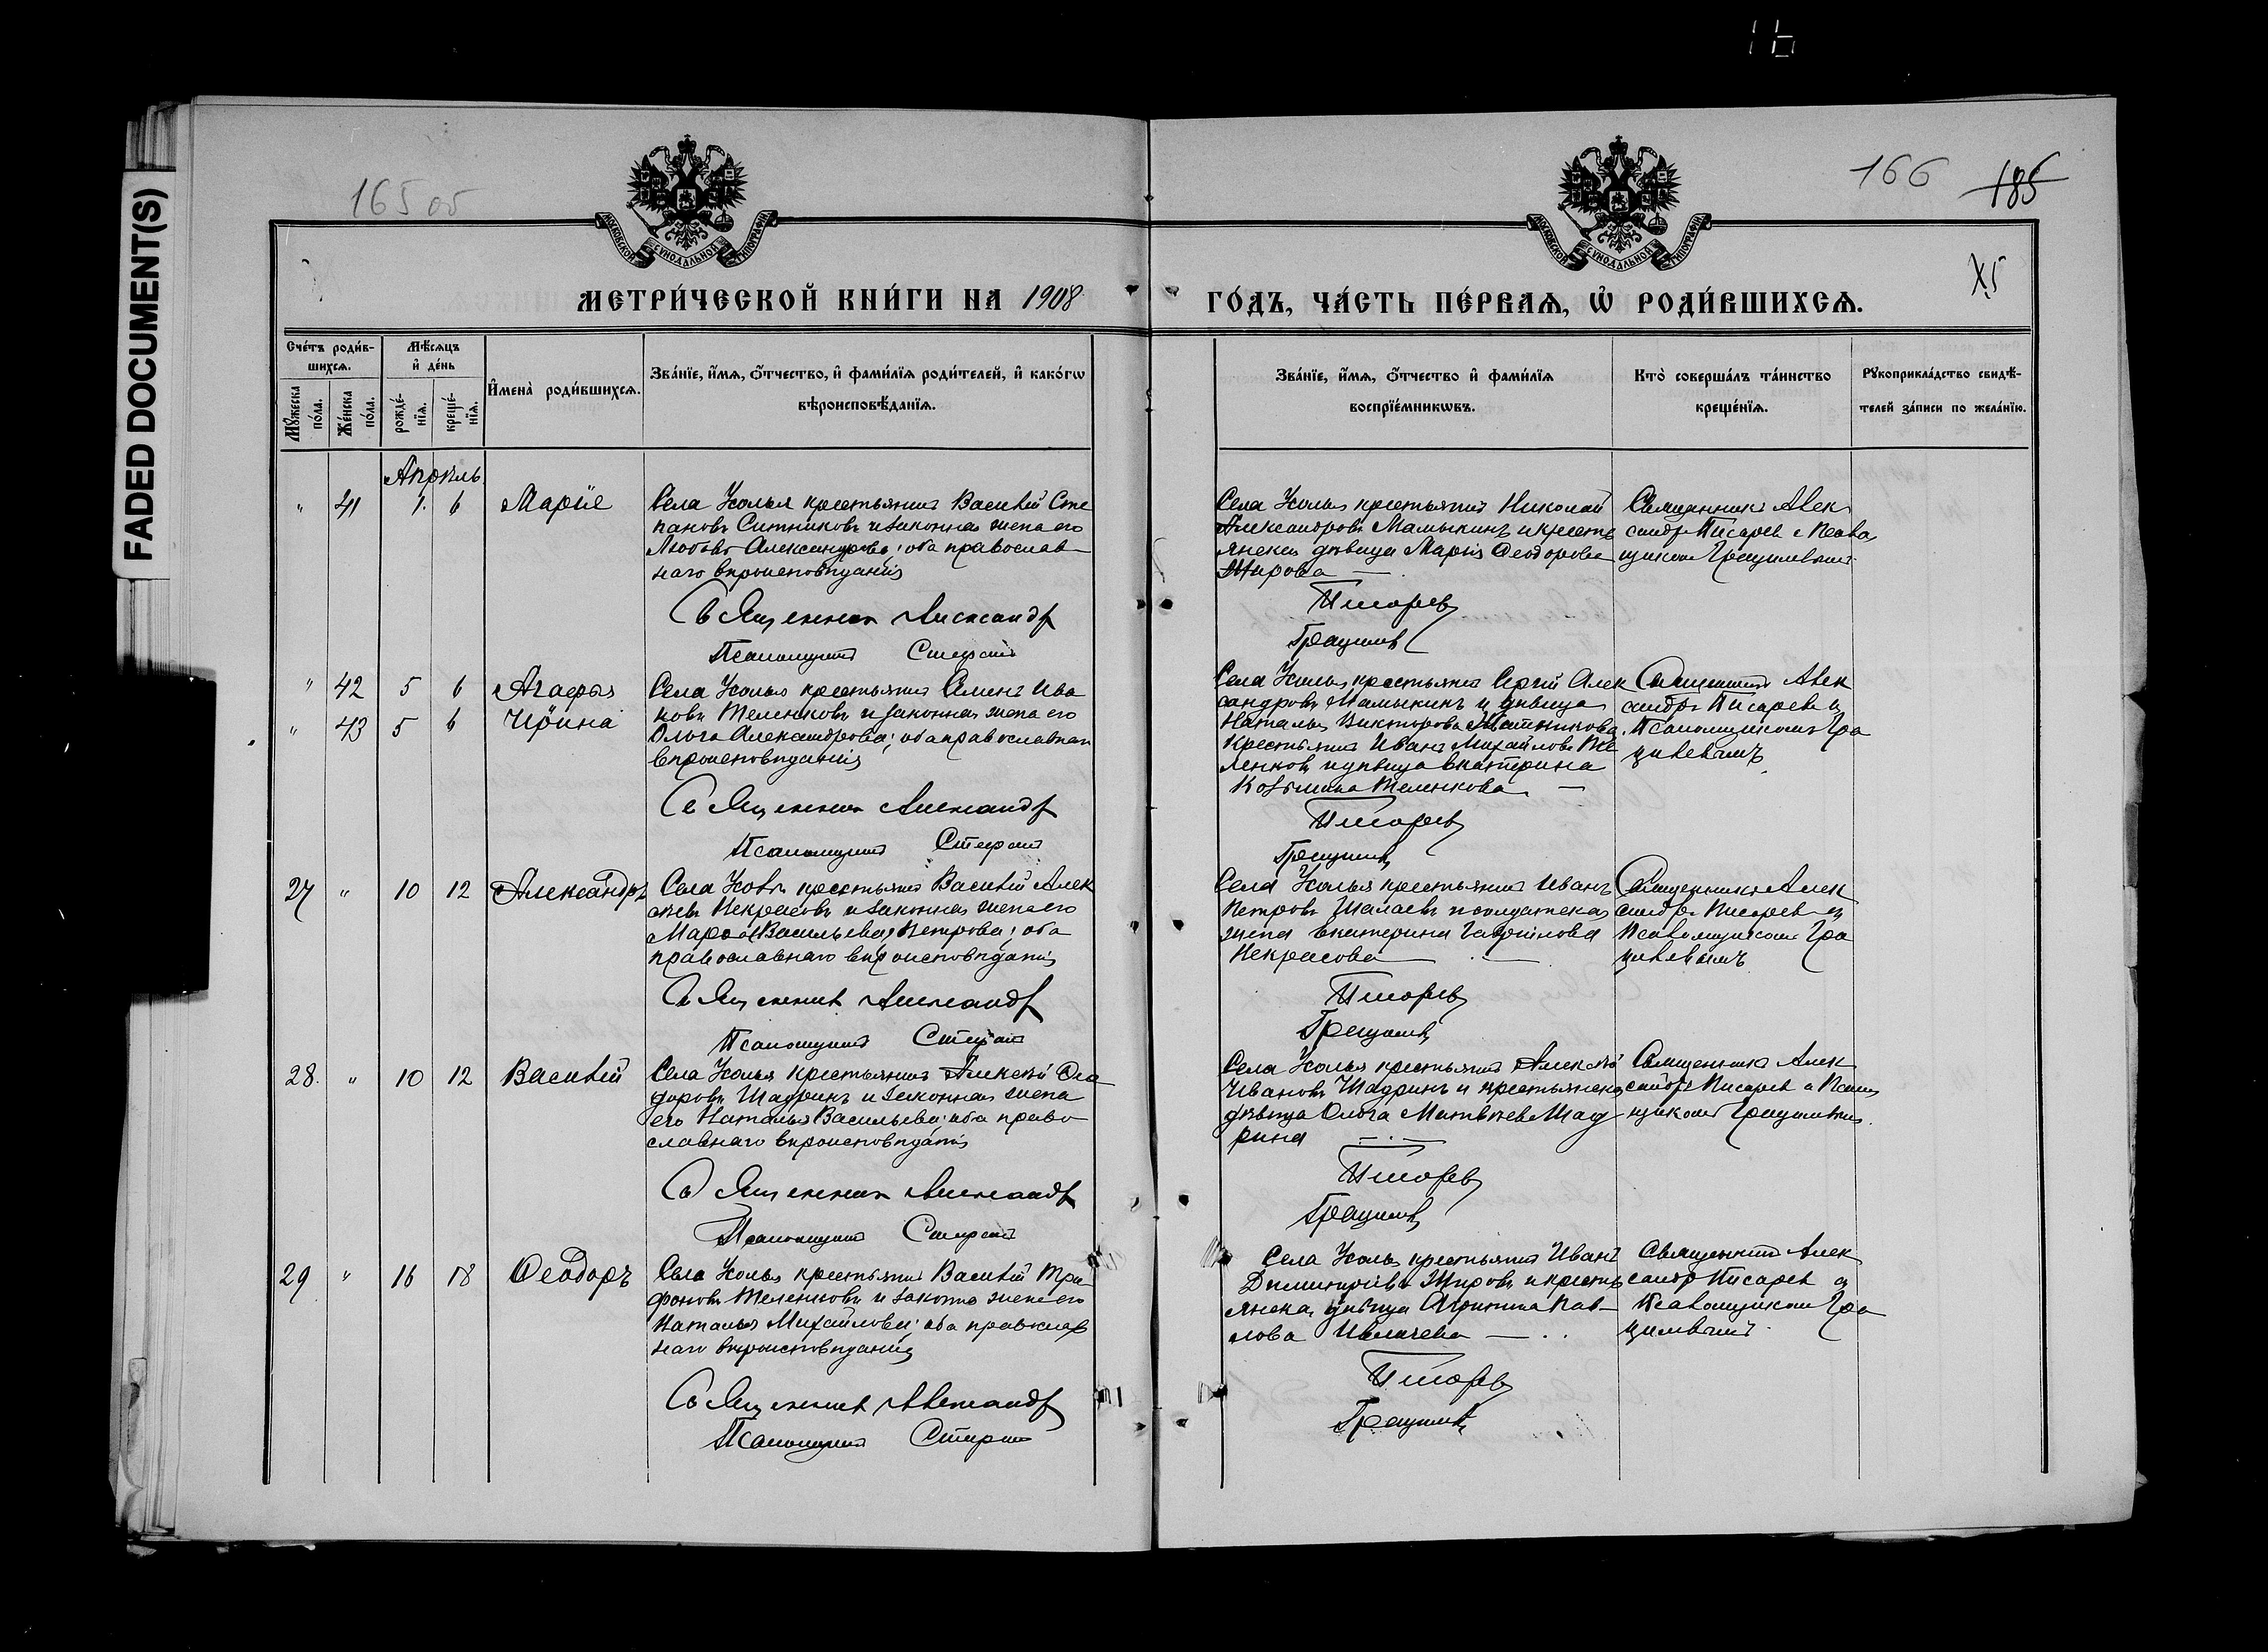 16
FADED DOCUMENT(S)
165 об
166 185
МОСКОВСКОЙ СѴНОДАЛЬНОЙ ТИПОГРАФІИ
МОСКОВСКОЙ СѴНОДАЛЬНОЙ ТИПОГРАФІИ
МЕТРИ́ЧЕСКОЙ КНИ́ГИ НА 1908
ГО́ДЪ, ЧА́СТЬ ПЕ́РВАѦ, Ѡ҆ РОДИ́ВШИХСѦ.
Сче́тъ роди́в-
шихсѧ.
Мѣ́сѧцъ
и҆ де́нь
Мꙋ́жеска
по́ла.
Же́нска
по́ла.
рожде́-
нїѧ.
креще́-
нїѧ.
И҆мена̀ роди́вшихсѧ.
Зва́нїе, и҆́мѧ, ѻ҆́тчество, и҆ фами́лїѧ роди́телей, и҆ како́гѡ
вѣроисповѣ́данїѧ.
Зва́нїе, и҆́мѧ, ѻ҆́тчество и҆ фами́лїѧ
воспрїе́мникѡвъ.
Кто̀ соверша́лъ та́инство
креще́нїѧ.
Рꙋкоприкла́дство свидѣ́-
телей за́писи по жела́нїю.
Апрѣль
" 41 1. 6 Марія
Села Усолья крестьянинъ Василій Сте
пановъ Ситниковъ и законная жена его
Любовь Александрова; оба православ-
наго вѣроисповѣданія
Священник Александр
Псаломщикъ Стефанъ
Села Усолья крестьянинъ Николай
Александровъ Мамыкинъ и кресть
янская дѣвица Марія Ѳеодорова
Жирова —
Писарев
Грацилев
Священникъ Алек
сандръ Писаревъ с Псалом
щикомъ Грацилевымъ
" 42 5 6 Агафья
" 43 5 6 Ирина
Села Усолья крестьянинъ Семенъ Ива
новъ Теленковъ и законная жена его
Ольга Александрова; оба православнаго
вѣроисповѣданія
Священник Александр
Псаломщикъ Стефанъ
Села Усолья крестьянинъ Сергій Алек
сандровъ Мамыкинъ и дѣвица
Наталья Викторова
Крестьянинъ Иванъ Михайловъ Те
ленковъ и дѣвица Екатерина
Козьмина Теленкова. —
Писарев
Грацилев
Священникъ Алек
сандръ Писаревъ и
Псаломщикомъ Гра
цилевымъ
27 " 10 12 Александръ
Села Усолья крестьянинъ Василій Алек
сѣевъ Некрасовъ и законная жена его
Марѳа Васильева Петрова; оба
православнаго вѣроисповѣданія
Священник Александр
Псаломщикъ Стефанъ
Села Усолья крестьянинъ Иванъ
Петровъ Шалаевъ и солдатская
жена Екатерина Гаврилова
Некрасова —
Писарев
Грацилев
Священникъ Алек
сандръ Писаревъ и
Псаломщикомъ Гра
цилевымъ
28. " 10 12 Василій
Села Усолья крестьянинъ Алексѣй Ѳео
доровъ Шадринъ и законная жена
его Наталья Васильева; оба право-
славнаго вѣроисповѣданія
Священник Александр
Псаломщикъ Стефанъ
Села Усолья крестьянинъ Алексѣй
Ивановъ Шадринъ и крестьянская
дѣвица Ольга Матвѣева Шад
рина —
Писарев
Грацилев
Священникъ Алек
сандръ Писаревъ с Псалом
щикомъ Грацилевымъ.
29 " 16 18 Ѳеодоръ
Села Усолья крестьянинъ Василій Три
фоновъ Теленковъ и законная жена его
Наталья Михайлова; оба православ
наго вѣроисповѣданія
Священник Александр
Псаломщикъ Стефанъ
Села Усолья крестьянинъ Иванъ
Димитріевъ Жировъ и кресть
янская дѣвица Агрипина Пав-
лова —
Писарев
Грацилев
Священникъ Алек
сандръ Писаревъ и
Псаломщикомъ Гра
цилевымъ